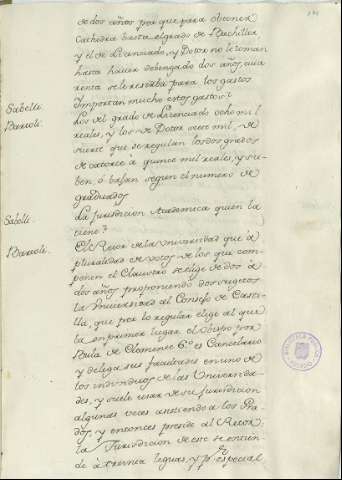 de dos años, por que para obtener
Cathedra basta el grado de Bachiller
y el de Lizenciado, y Dotor no le toman
hasta haver debengado dos años, cuia
renta se le reserba para los gastos
Sabelli. Ymportan mucho estos gastos?
Bartoli. Los del grado de Lizenciado ocho mil
reales, y los de Dotor siete mil, de
suerte que se regulan los dos grados
de catorce à quince mil reales, y su-
ben, ó bajan segun el numero de
graduados
Sabelli. La jurisdicion Academica quien la
tiene?
Bartoli. El Retor de la Universidad que à
pluralidad de votos de los que com-
ponen el Claustro se elige de dos à
dos años proponiendo dos sugetos
la Universidad al Consejo de Casti-
lla, que por lo regular elige al que
va en primer lugar. el Obispo por
Bula de Clemente 6.º es Cancelario
y delega sus facultades en uno de
los individuos de las Universida-
des, y suele usar de su jurisdicion
algunas veces asistiendo a los Gra-
dos, y entonces preside al Retor,
la Jurisdicion de este se entien-
de à treinta leguas, y p.r especial